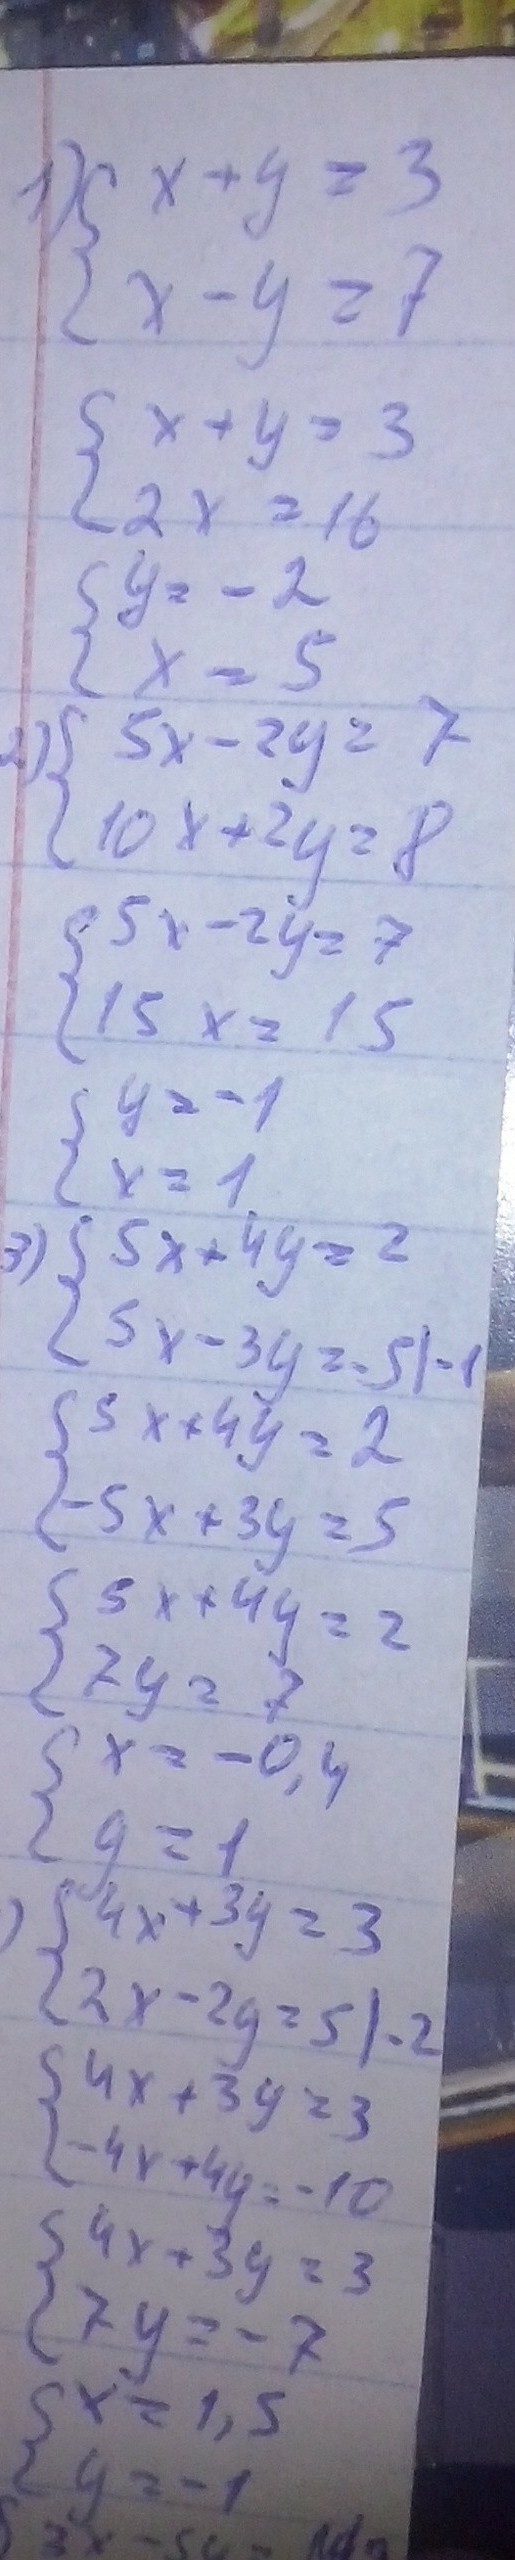 1) { x + y = 3
x - y = 7
{ x + y = 3
2x = 16
{ y = -2
x = 5
2) { 5x - 2y = 7
10x + 2y = 8
{ 5x - 2y = 7
15x = 15
{ y = -1
x = 1
3) { 5x + 4y = 2
5x - 3y = -5 | -1
{ 5x + 4y = 2
-5x + 3y = 5
{ 5x + 4y = 2
7y = 7
{ x = -0,4
y = 1
) { 4x + 3y = 3
2x - 2y = 5 | -2
{ 4x + 3y = 3
-4x + 4y = -10
{ 4x + 3y = 3
7y = -7
{ x = 1,5
y = -1
3x - 5y =